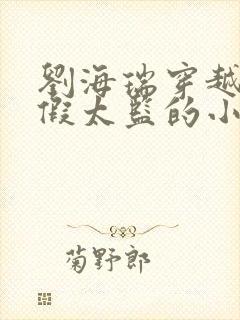 劉海瑞穿越
假太監的小
菊野郎